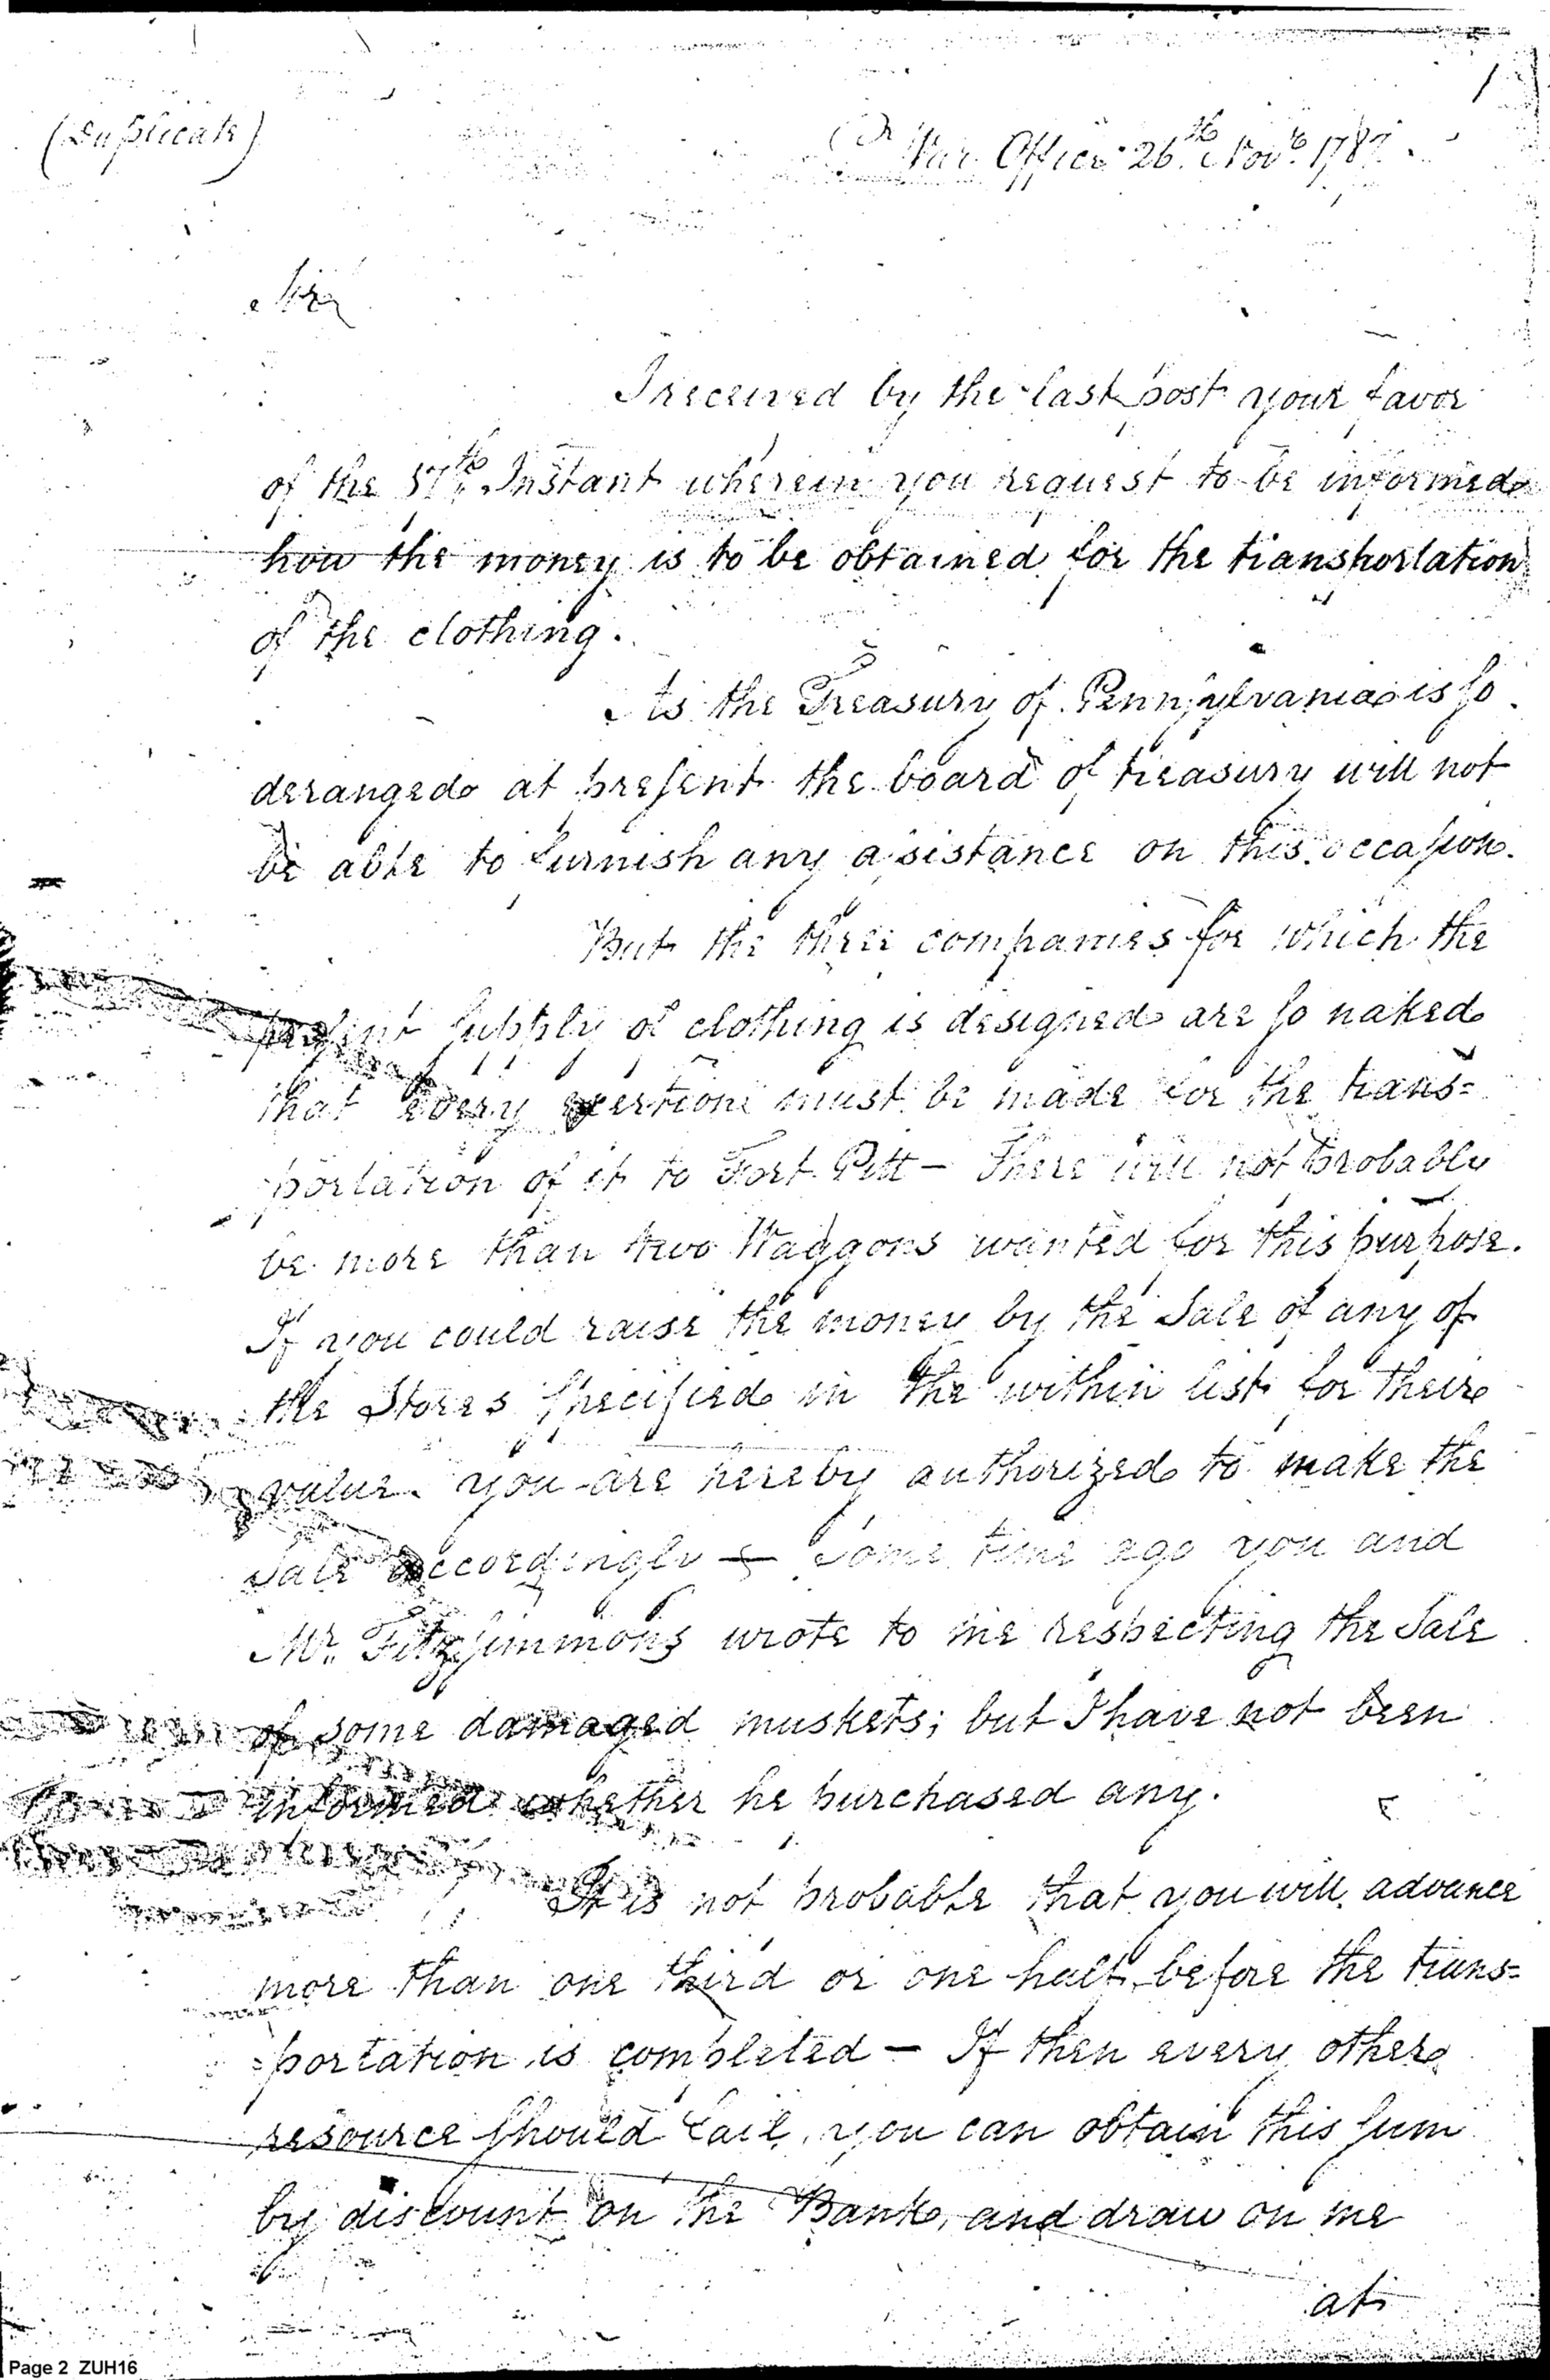 (Duplicate)
War Office 26th Novr. 1787.
Sir
I received by the last post your favor
of the 17th. Instant wherein you request to be informed
how the money is to be obtained for the transportation
of the clothing.
As the Treasury of Pennsylvania is so
deranged at present the board of treasury will not
be able to furnish any assistance on this occasion.
But the three companies for which the
present supply of clothing is designed are so naked
that every exertion must be made for the trans=
portation of it to Fort Pitt — There will not probably
be more than two Waggons wanted for this purpose.
If you could raise the money by the Sale of any of
the Stores specified in the within list for their
value. you are hereby authorized to make the
Sale accordingly — Some time ago you and
Mr. Fitzsimmons wrote to me respecting the Sale
of some damaged muskets; but I have not been
informed whether he purchased any.
It is not probable that you will advance
more than one third or one half before the trans=
=portation is completed — If then every other
resource should fail, you can obtain this sum
by discount on the Bank, and draw on me
at
Page 2 ZUH16